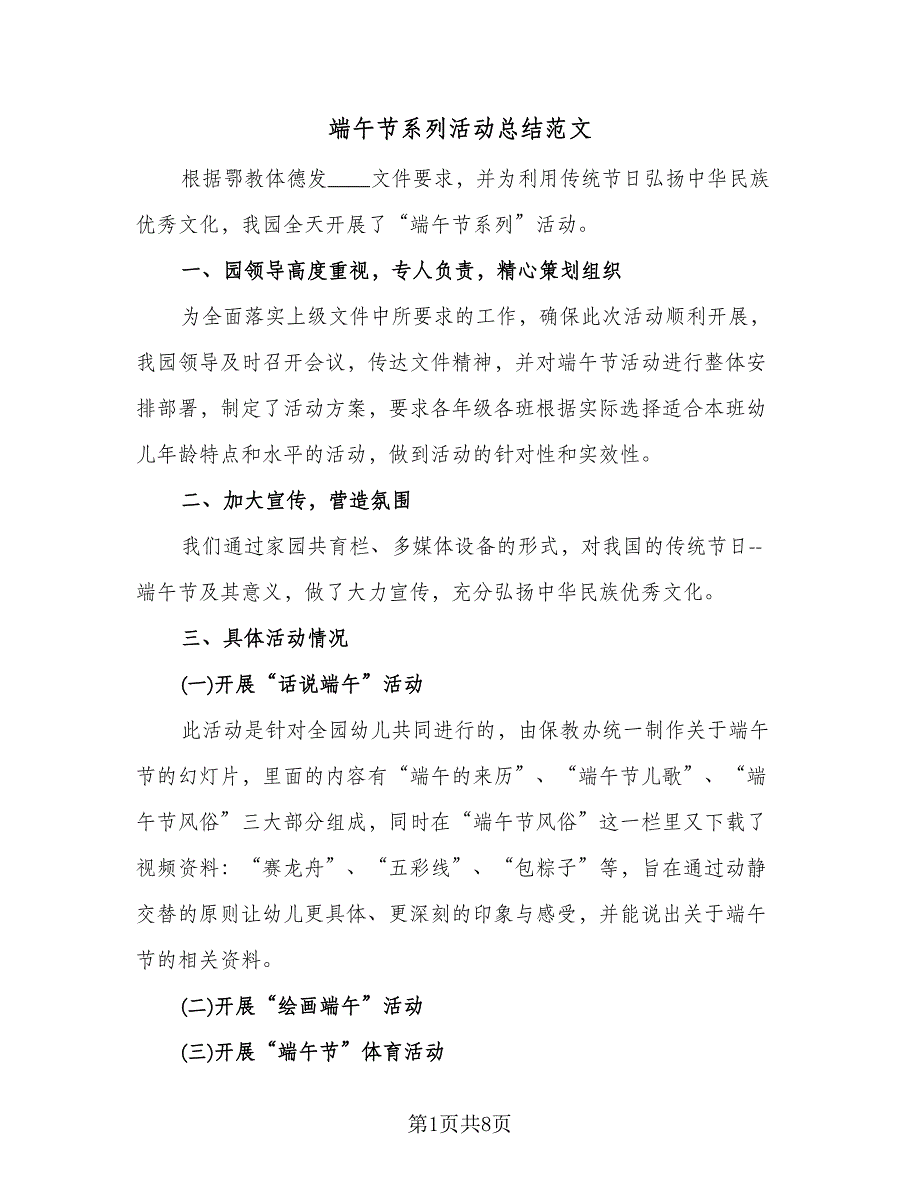 端午节系列活动总结范文
根据鄂教体德发____文件要求，并为利用传统节日弘扬中华民族
优秀文化，我园全天开展了“端午节系列”活动。
一、园领导高度重视，专人负责，精心策划组织
为全面落实上级文件中所要求的工作，确保此次活动顺利开展，
我园领导及时召开会议，传达文件精神，并对端午节活动进行整体安
排部署，制定了活动方案，要求各年级各班根据实际选择适合本班幼
儿年龄特点和水平的活动，做到活动的针对性和实效性。
二、加大宣传，营造氛围
我们通过家园共育栏、多媒体设备的形式，对我国的传统节日--
端午节及其意义，做了大力宣传，充分弘扬中华民族优秀文化。
三、具体活动情况
(一)开展“话说端午”活动
此活动是针对全园幼儿共同进行的，由保教办统一制作关于端午
节的幻灯片，里面的内容有“端午的来历”、“端午节儿歌”、“端
午节风俗”三大部分组成，同时在“端午节风俗”这一栏里又下载了
视频资料：“赛龙舟”、“五彩线”、“包粽子”等，旨在通过动静
交替的原则让幼儿更具体、更深刻的印象与感受，并能说出关于端午
节的相关资料。
(二)开展“绘画端午”活动
(三)开展“端午节”体育活动
第1页共8页